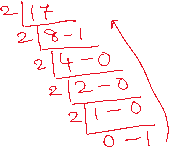 2 17
2 8-1
2 4-0
2 2-0
2 1-0
0-1